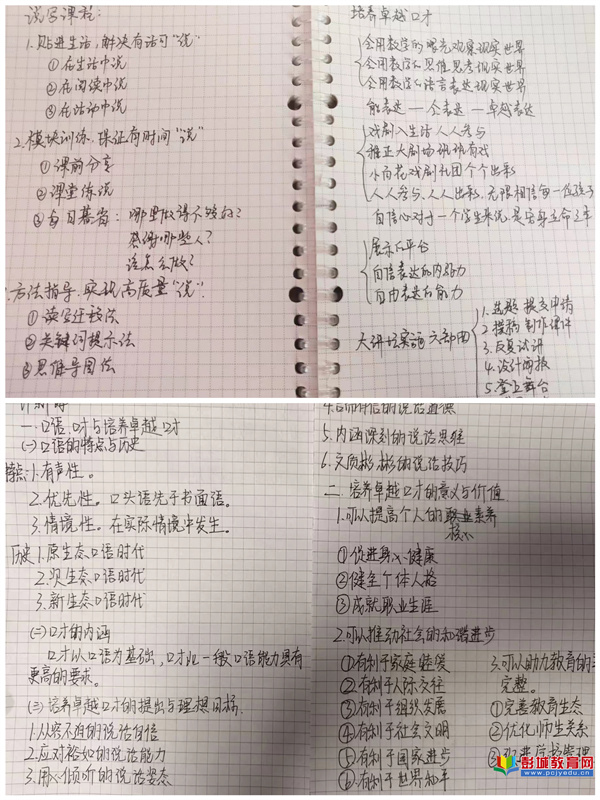 说写课程：
1.贴近生活，解决有话可“说”
①在生活中说
②在阅读中说
③在活动中说
2.模块训练，保证有时间“说”
①课前分享
②课堂练说
③每日暮省：哪里做得不够好？
感谢哪些人？
该怎么做？
方法指导，实现高质量“说”.
①读写迁移法
②关键词提示法
③思维导图法
培养卓越口才
会用数学的眼光观察现实世界
会用数学的思维思考现实世界
会用数学的语言表达现实世界
能表达—会表达—卓越表达
戏剧入生活人人参与
推正大剧场班班有戏
小白花戏剧社团个个出彩
人人参与、人人出彩，无限相信每一位孩子
自信心对于一个学生来说，是安身立命之本
展示的平台
自信表达的内驱力
自由表达的能力
大讲坛实施六部曲
1.选题 提交申请
2.撰稿 制作课件
3.反复试讲
4.设计海报
5.登上舞台
一.口语、口才与培养卓越口才
(一)口语的特点与历史
特点：1.有声性。
2.优先性。口头语先于书面语。
3.情境性。在实际情境中发生。
历史1.原生态口语时代
2.次生态口语时代
3.新生态口语时代
(二)口才的内涵
口才以口语为基础，口才比一般口语能力具有
更高的要求。
(三)培养卓越口才的提出与理想目标.
1.从容不迫的说话自信
2.应对裕如的说话能力
3.用心倾听的说话姿态
4.言而有信的说话道德
5.内涵深刻的说话思维
6.文质彬彬的说话技巧
二.培养卓越口才的意义与价值
1.可以提高个人的职业素养
核心
①促进身心健康
②健全个体人格
③成就职业生涯
2.可以推动社会的和谐进步
①有利于家庭睦爱
②有利于人际交往
③有利于组织发展
④有利于社会文明
⑤有利于国家进步
⑥有利于世界和平
3.可以助力教育的
完整。
①完善教育生态
②优化师生关系
③
彭城教育网
www.pcjyedu.cn